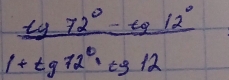 tg 72° - tg 12°
1 + tg 72° · tg 12